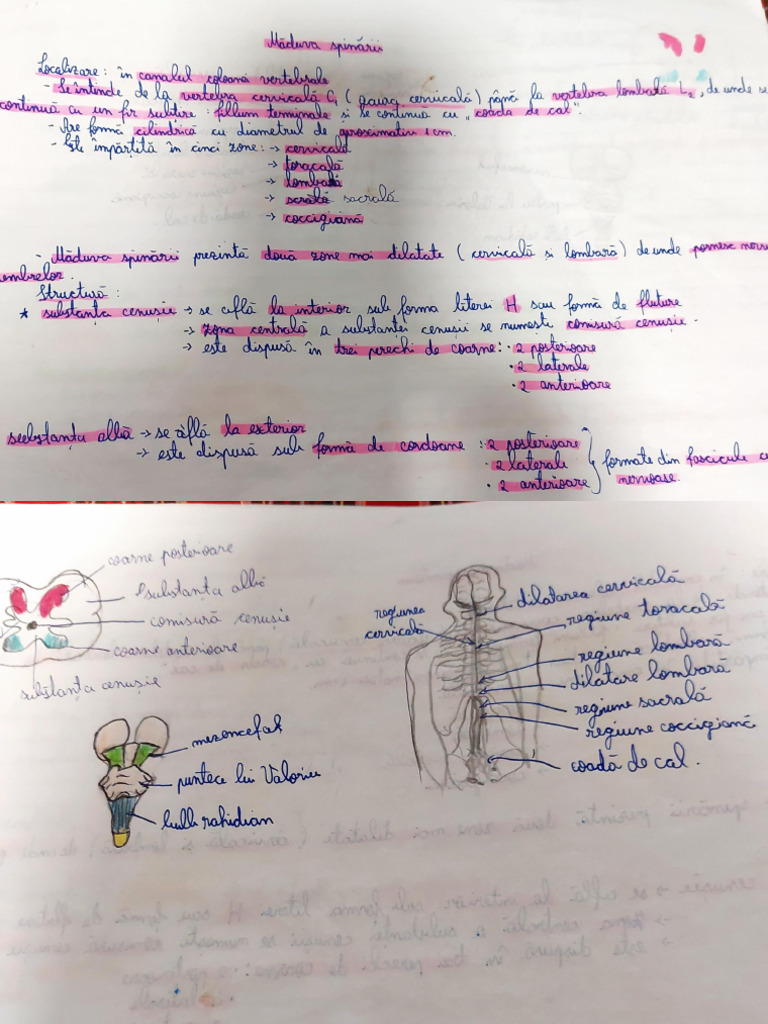 Măduva spinării
Localizare: în canalul coloanei vertebrale
- Se întinde de la vertebra cervicală C1 (gaura cervicală) până la vertebra lombată L2, de unde se
continuă cu un fir subțire: fillum terminale și se continuă cu "coada de cal".
- Are formă cilindrică cu diametrul de aproximativ 1 cm.
- Este împărțită în cinci zone: → cervicală
→ toracală
→ lombată
→ sacrală
→ coccigiană
- Măduva spinării prezintă două zone mai dilatate (cervicală și lombară) de unde pornesc
membrelor.
Structură:
* substanța cenușie → se află la interior sub forma literei H sau formă de fluture
→ zona centrală a substantei cenușii se numește comisură cenușie.
→ este dispusă în trei perechi de coarne: · 2 posterioare
· 2 laterale
· 2 anterioare
substanța albă → se află la exterior
→ este dispusă sub formă de cordoane: · 2 posterioare
· 2 laterale
· 2 anterioare
formate din fascicule
nervoase.
coarne posterioare
substanța albă
comisură cenușie
coarne anterioare
substanța cenușie
mezencefal
puntea lui Valoriu
bulb rahidian
regiunea
cervicală
dilatarea cervicală
regiune toracală
regiune lombară
dilatare lombară
regiune sacrală
regiune coccigiană
coadă de cal.